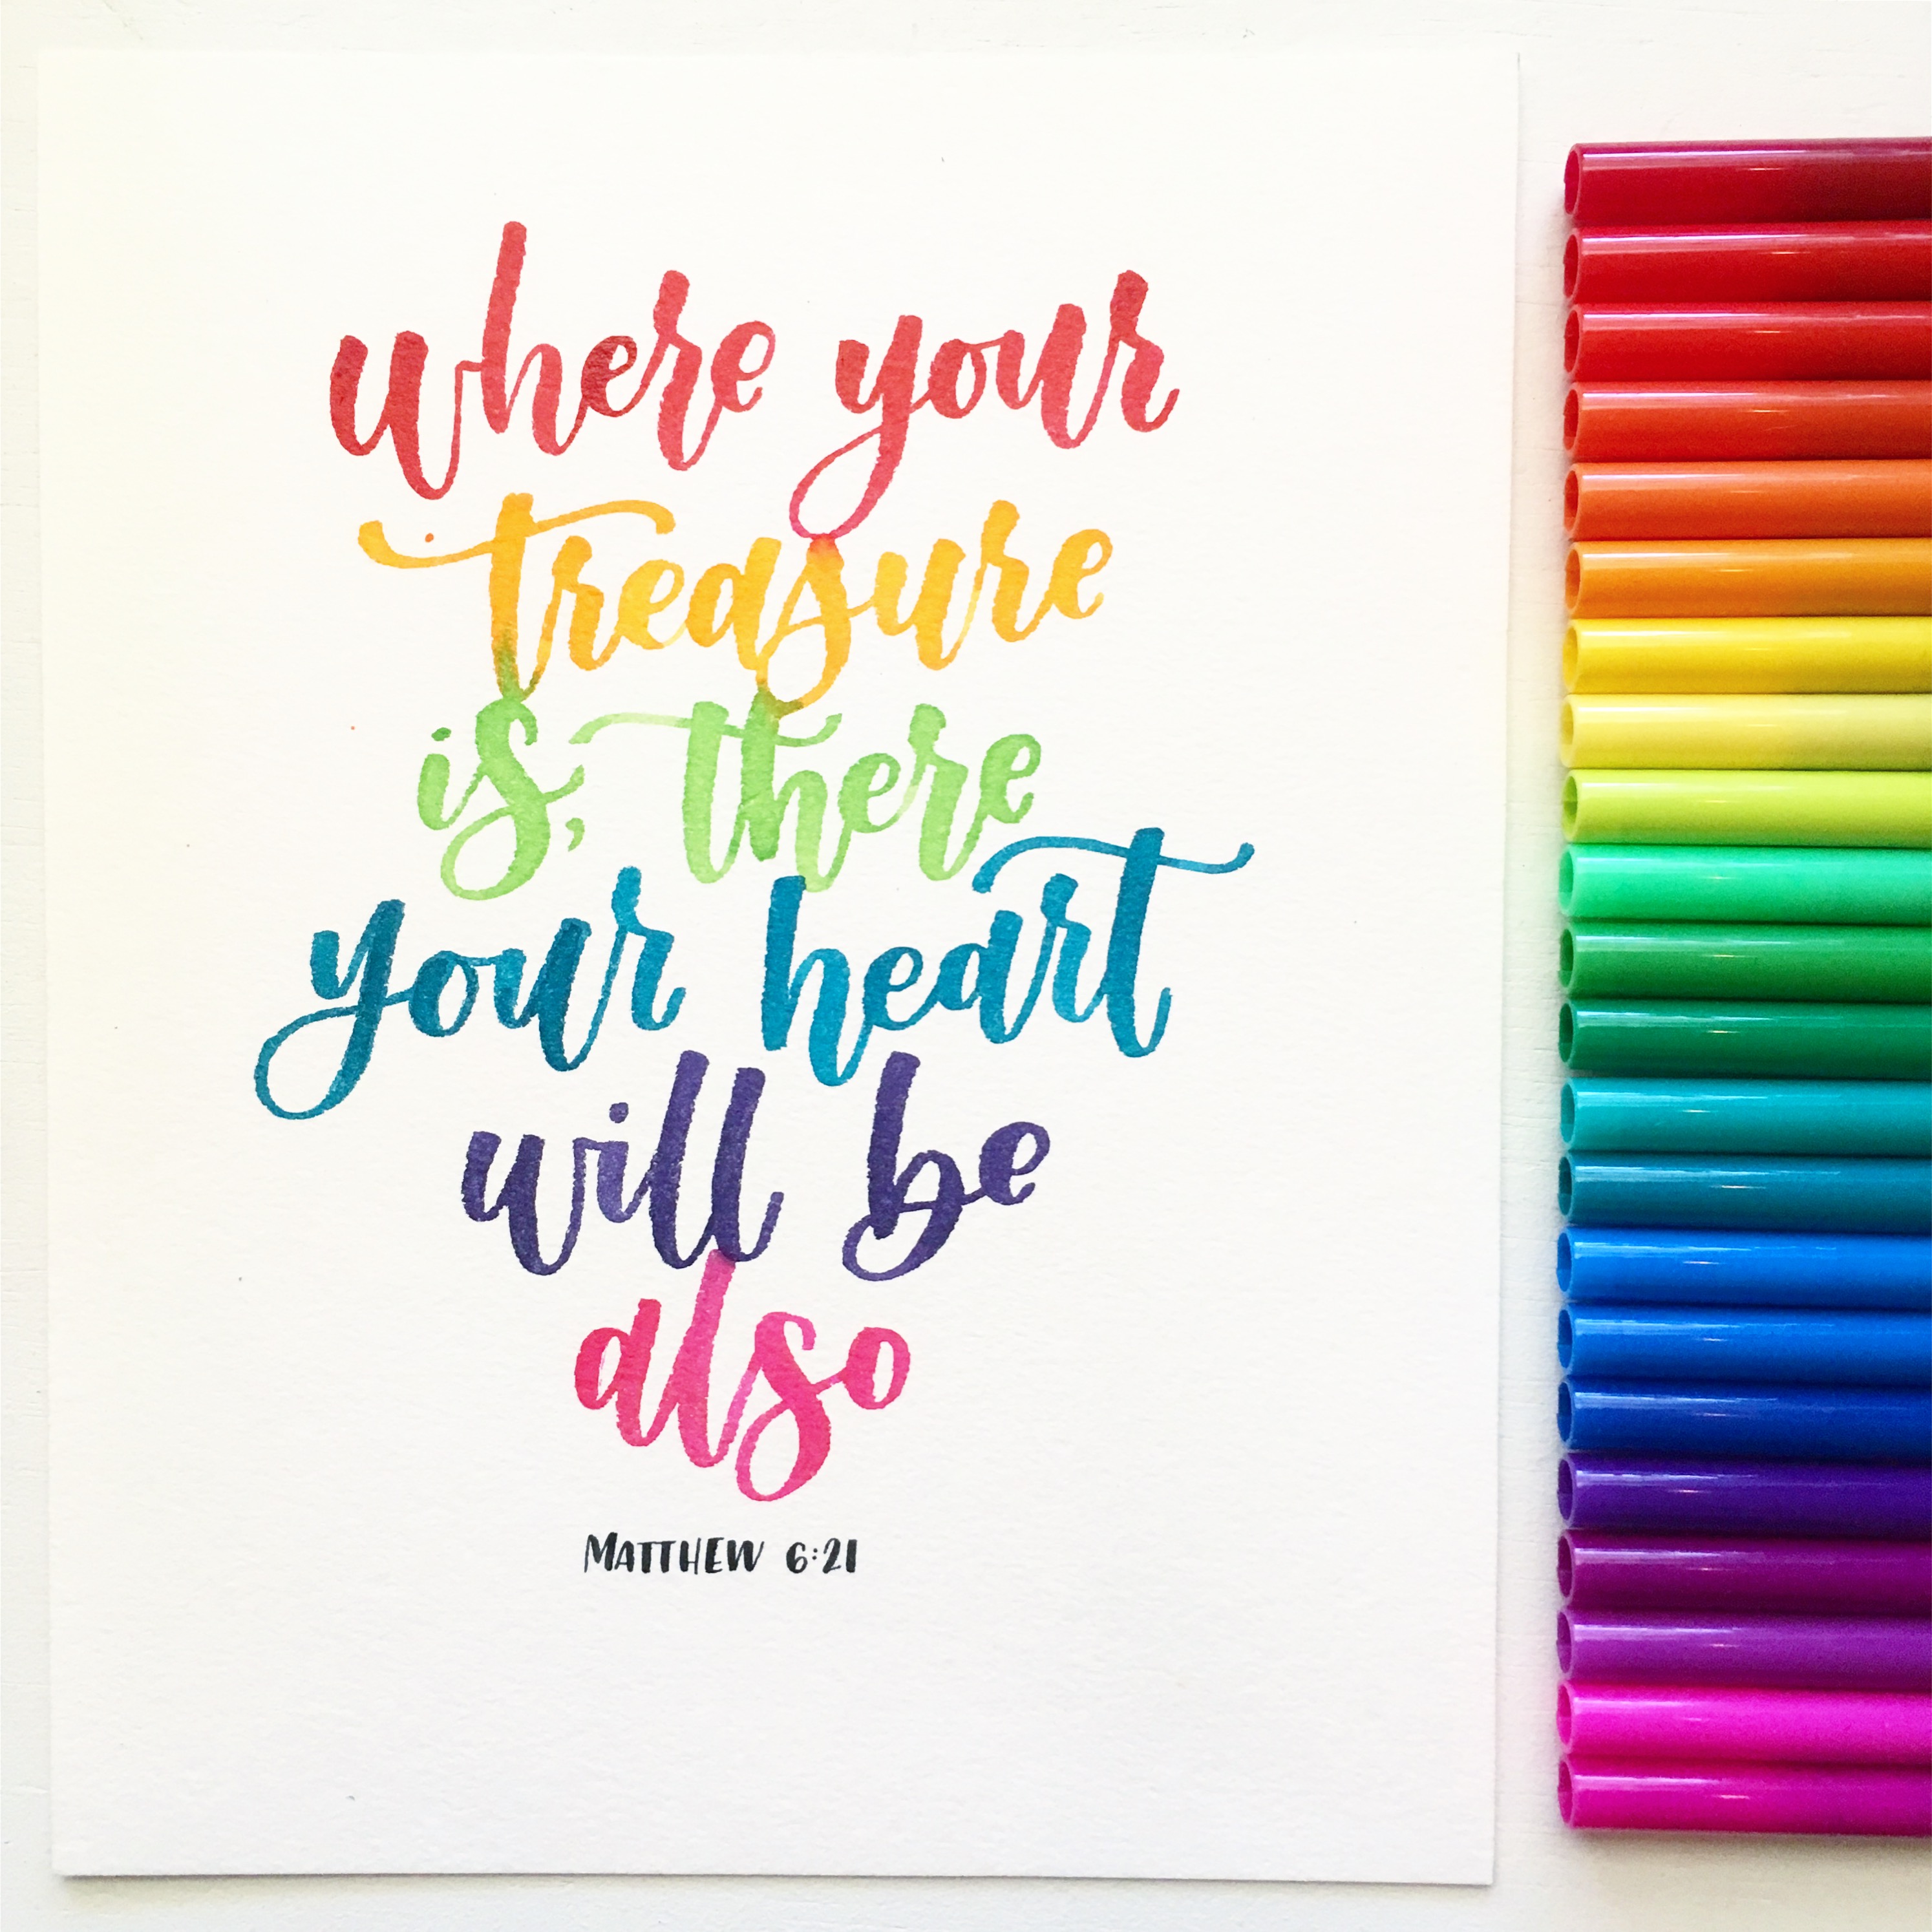 where your
treasure
is, there
your heart
will be
also
MATTHEW 6:21